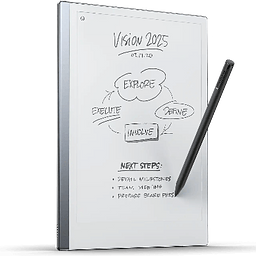 VISION 2025
EXPLORE
EXECUTE
DEFINE
INVOLVE
NEXT STEPS:
• DETAIL MILESTONES
• TEAM
• PREPARE BOARD